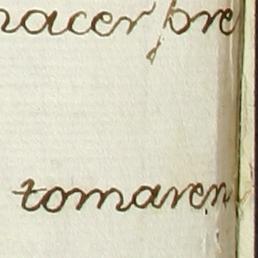 nacer pre
tomaren